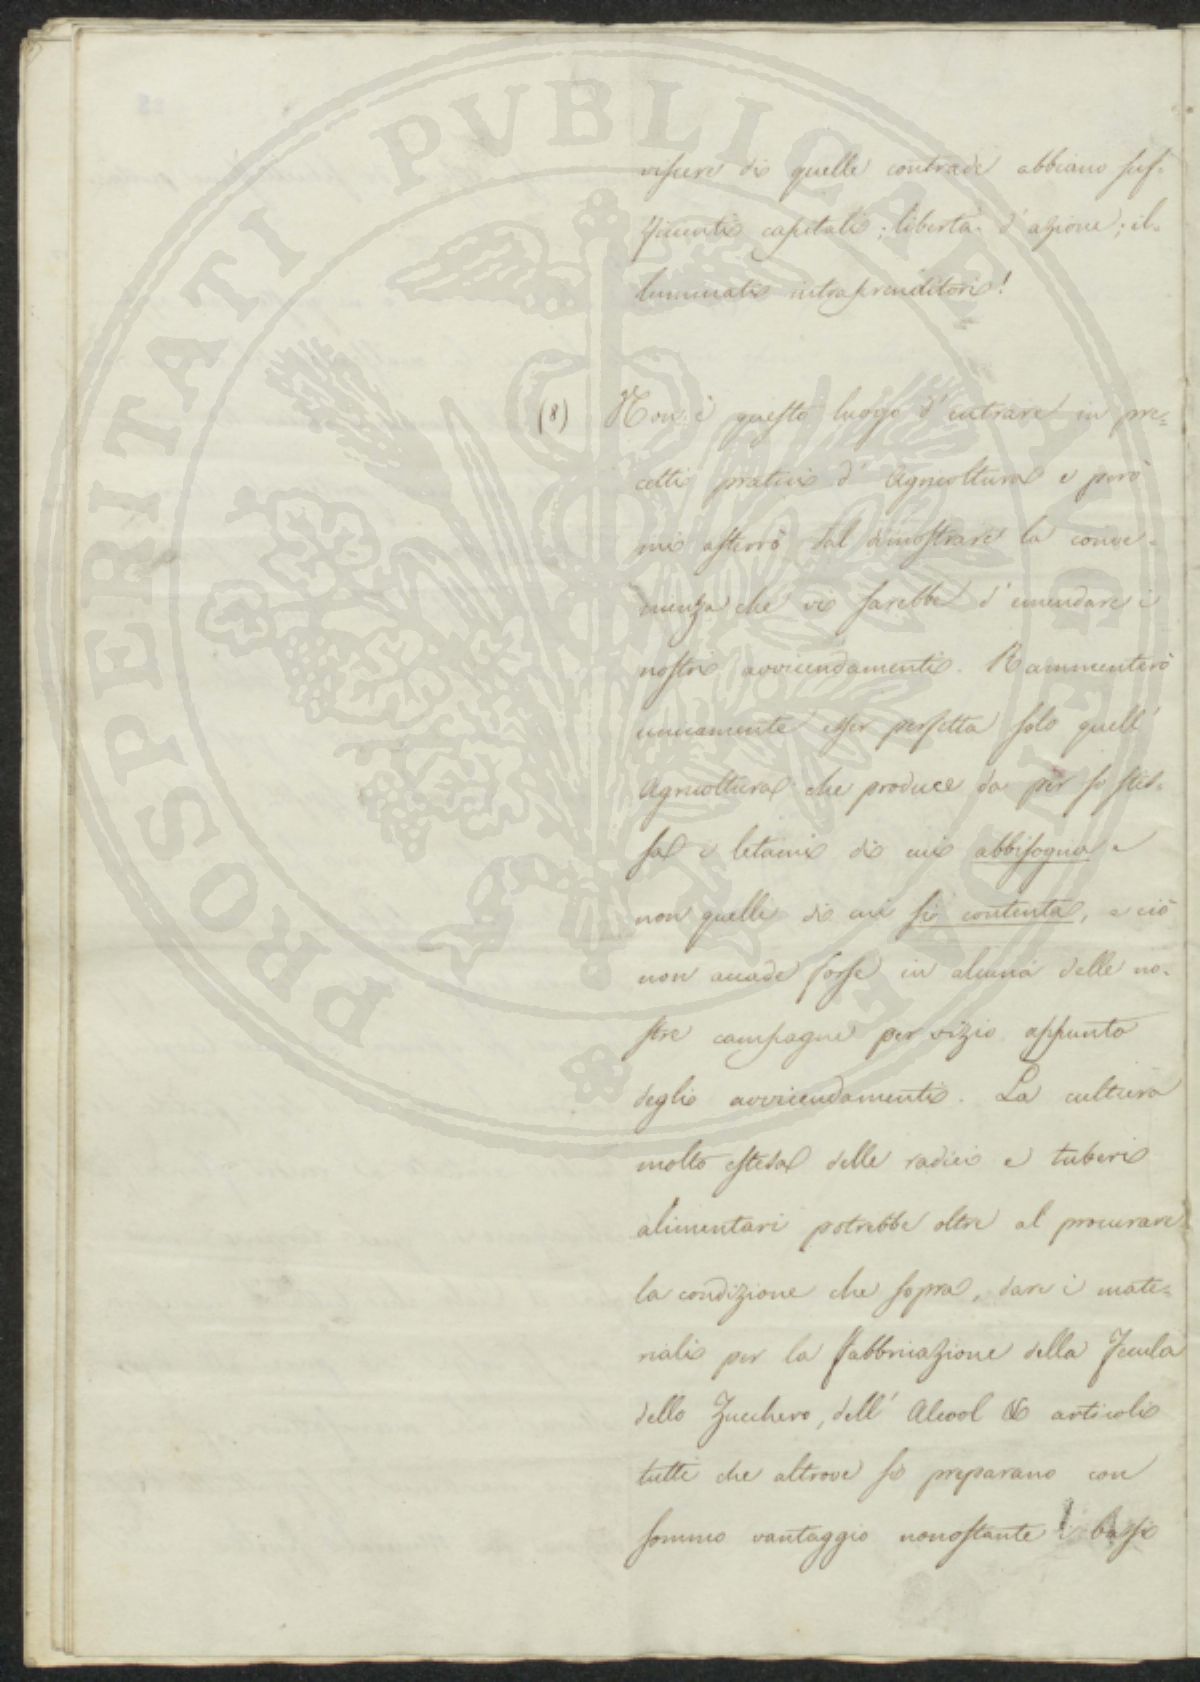 viscere di quelle contrade abbiano suf-
ficienti capitali; libertà d'azione; il-
luminati intraprenditori!
(8) Non è questo luogo d'entrare in pre-
cetti pratici d'Agricoltura e però
mi asterrò dal dimostrare la conve-
nienza che vi sarebbe d'emendare i
nostri avvicendamenti. Rammenterò
unicamente esser perfetta solo quell'
Agricoltura che produce da per se stes-
sa i letami di cui abbisogna e
non quelli di cui si contenta, e ciò
non accade forse in alcuna delle no-
stre campagne per vizio appunto
degli avvicendamenti. La cultura
molto estesa delle radici e tuberi
alimentari potrebbe oltre al procurare
la condizione che sopra, dare i mate-
riali per la fabbricazione della Fecula
dello Zucchero, dell'Alcool & articoli
tutti che altrove si preparano con
sommo vantaggio nonostante i bassi
PROSPERITATI PVBLICAE AVGENDAE